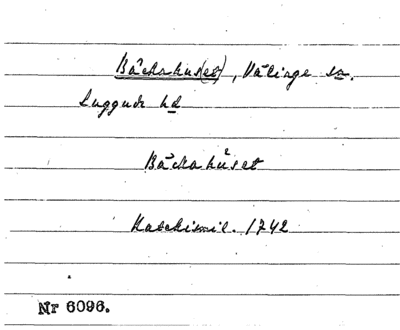 Bäckahus(et), Välinge sn.
Luggude hd
Bäckahuset
Katekismil. 1742
Nr 6096.